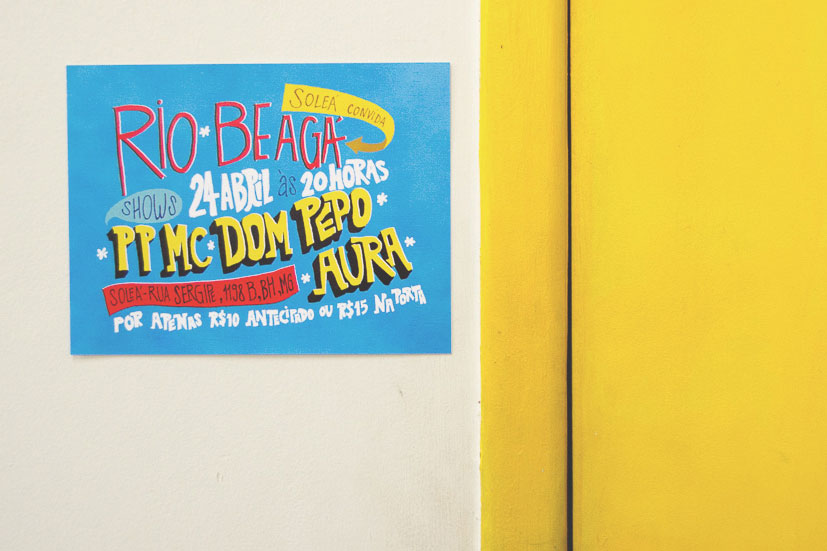 SOLEA CONVIDA
RIO*BEAGÁ
24 ABRIL ÀS 20 HORAS
SHOWS
*PP MC*DOM PÊPO*
*AURA*
SOLEA-RUA SERGIPE, 1198 B, BH, MG
POR APENAS R$10 ANTECIPADO OU R$15 NA PORTA